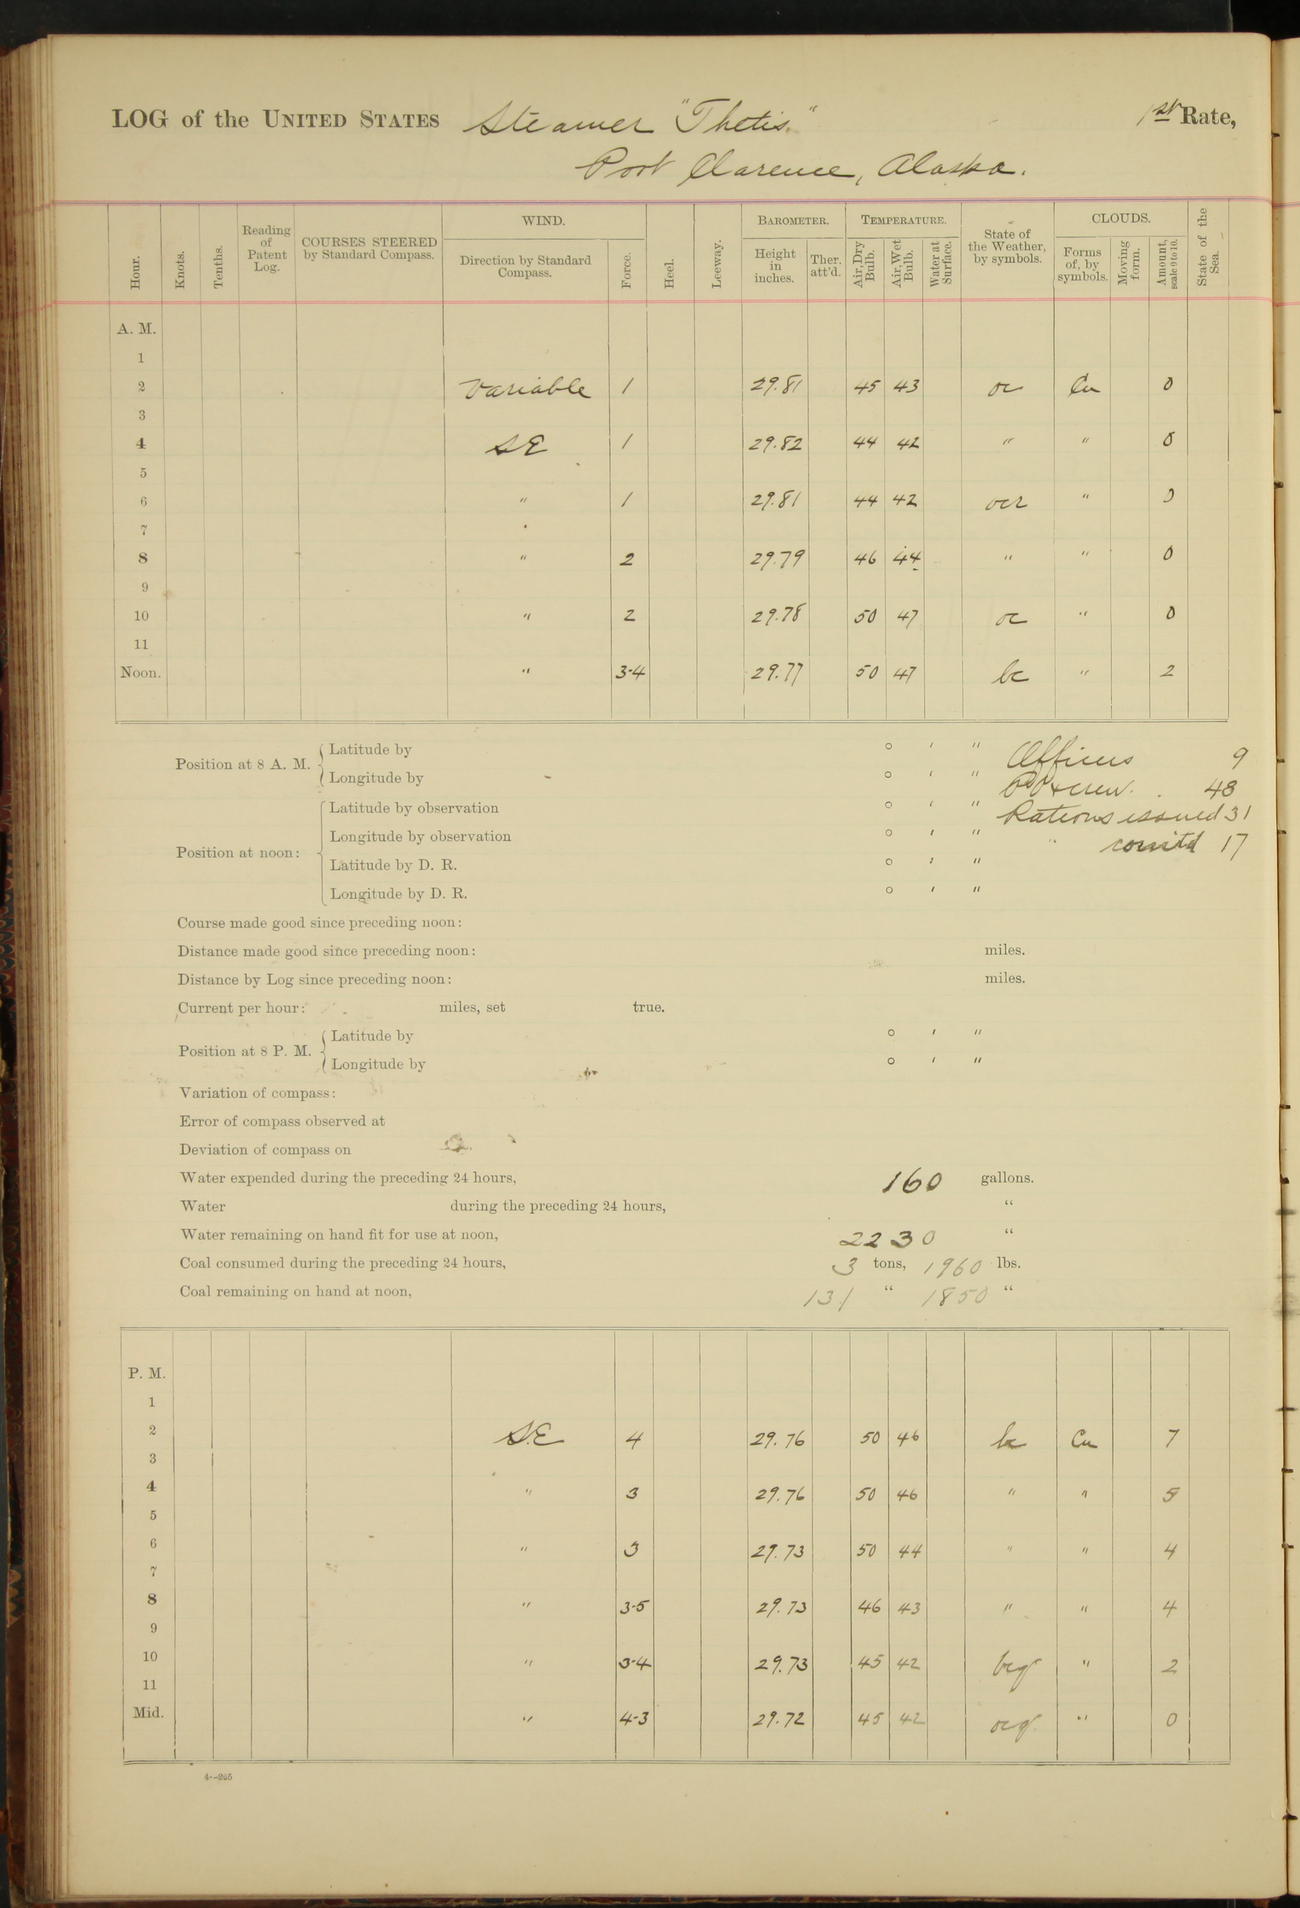 LOG of the UNITED STATES Steamer "Thetis." 1st Rate,
Port Clarence, Alaska.
Hour. Knots. Tenths. Reading of Patent Log. COURSES STEERED by Standard Compass. WIND. Direction by Standard Compass. Force. Heel. Leeway. BAROMETER. Height in inches. Ther. att'd. TEMPERATURE. Air, Dry Bulb. Air, Wet Bulb. Water at Surface. State of the Weather, by symbols. CLOUDS. Forms of, by symbols. Moving form. Amount, scale 0 to 10. State of the Sea.
A. M.
1
2 Variable 1 29.81 45 43 oc Cu 0
3
4 SE 1 29.82 44 42 " " 0
5
6 " 1 29.81 44 42 ocr " 0
7
8 " 2 29.79 46 44 " " 0
9
10 " 2 29.78 50 47 oc " 0
11
Noon. " 3-4 29.77 50 47 bc " 2
Position at 8 A. M. Latitude by ° ′ ″ Officers 9
Longitude by ° ′ ″ P.O's + crew. 48
Position at noon: Latitude by observation ° ′ ″ Rations issued 31
Longitude by observation ° ′ ″ " comt'd 17
Latitude by D. R. ° ′ ″
Longitude by D. R. ° ′ ″
Course made good since preceding noon:
Distance made good since preceding noon: miles.
Distance by Log since preceding noon: miles.
Current per hour: miles, set true.
Position at 8 P. M. Latitude by ° ′ ″
Longitude by ° ′ ″
Variation of compass:
Error of compass observed at
Deviation of compass on
Water expended during the preceding 24 hours, 160 gallons.
Water during the preceding 24 hours, "
Water remaining on hand fit for use at noon, 2230 "
Coal consumed during the preceding 24 hours, 3 tons, 1960 lbs.
Coal remaining on hand at noon, 131 " 1850 "
P. M.
1
2 S.E 4 29.76 50 46 bc Cu 7
3
4 " 3 29.76 50 46 " " 5
5
6 " 3 29.73 50 44 " " 4
7
8 " 3-5 29.73 46 43 " " 4
9
10 " 3-4 29.73 45 42 bcq " 2
11
Mid. " 4-3 29.72 45 42 ocq " 0
4--265